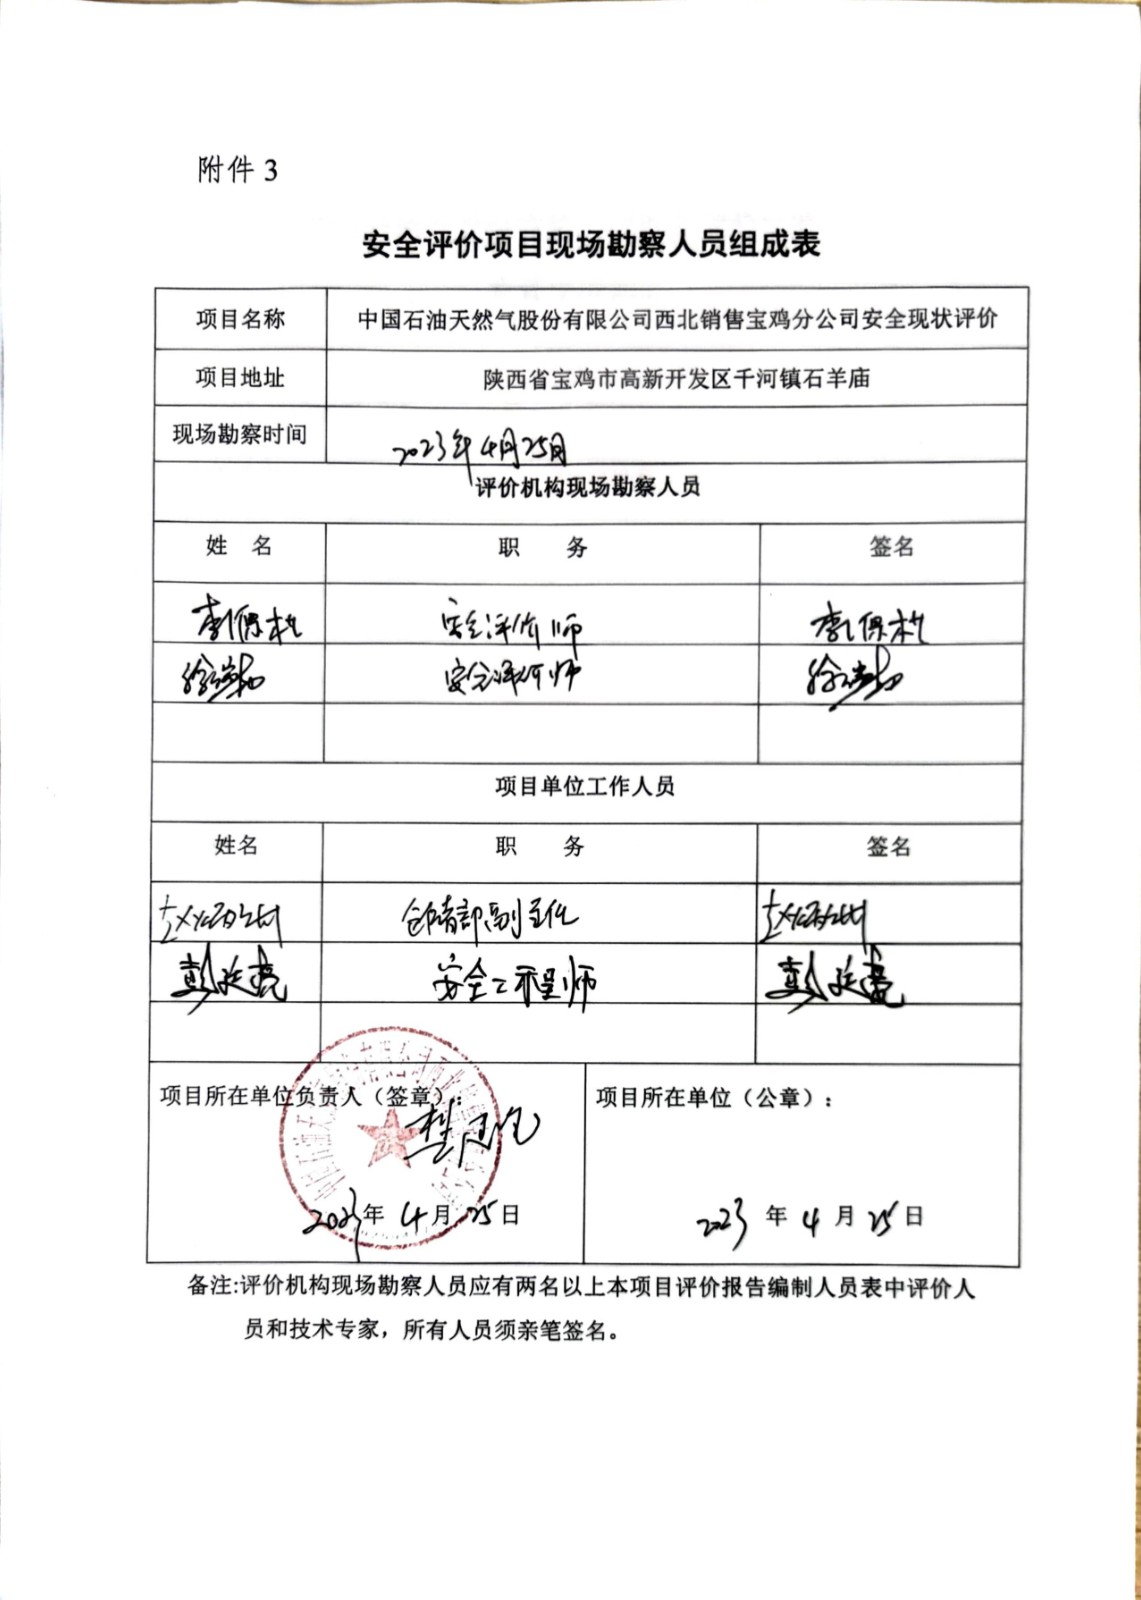 附件 3
安全评价项目现场勘察人员组成表
项目名称 中国石油天然气股份有限公司西北销售宝鸡分公司安全现状评价
项目地址 陕西省宝鸡市高新开发区千河镇石羊庙
现场勘察时间 2023年4月25日
评价机构现场勘察人员
姓 名 职 务 签名
李保 安全评价师 李保
徐 安全评价师 徐
项目单位工作人员
姓名 职 务 签名
赵 仓储部副主任 赵
彭延亮 安全工程师 彭延亮
项目所在单位负责人（签章）： 项目所在单位（公章）：
2023年 4 月 25 日 2023 年 4 月 25 日
备注:评价机构现场勘察人员应有两名以上本项目评价报告编制人员表中评价人
员和技术专家，所有人员须亲笔签名。